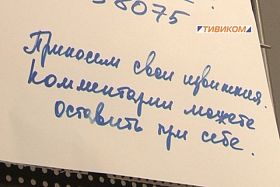 58075
ТИВИКОМ
Приносим свои извинения.
Комментарии можете
оставить при себе.